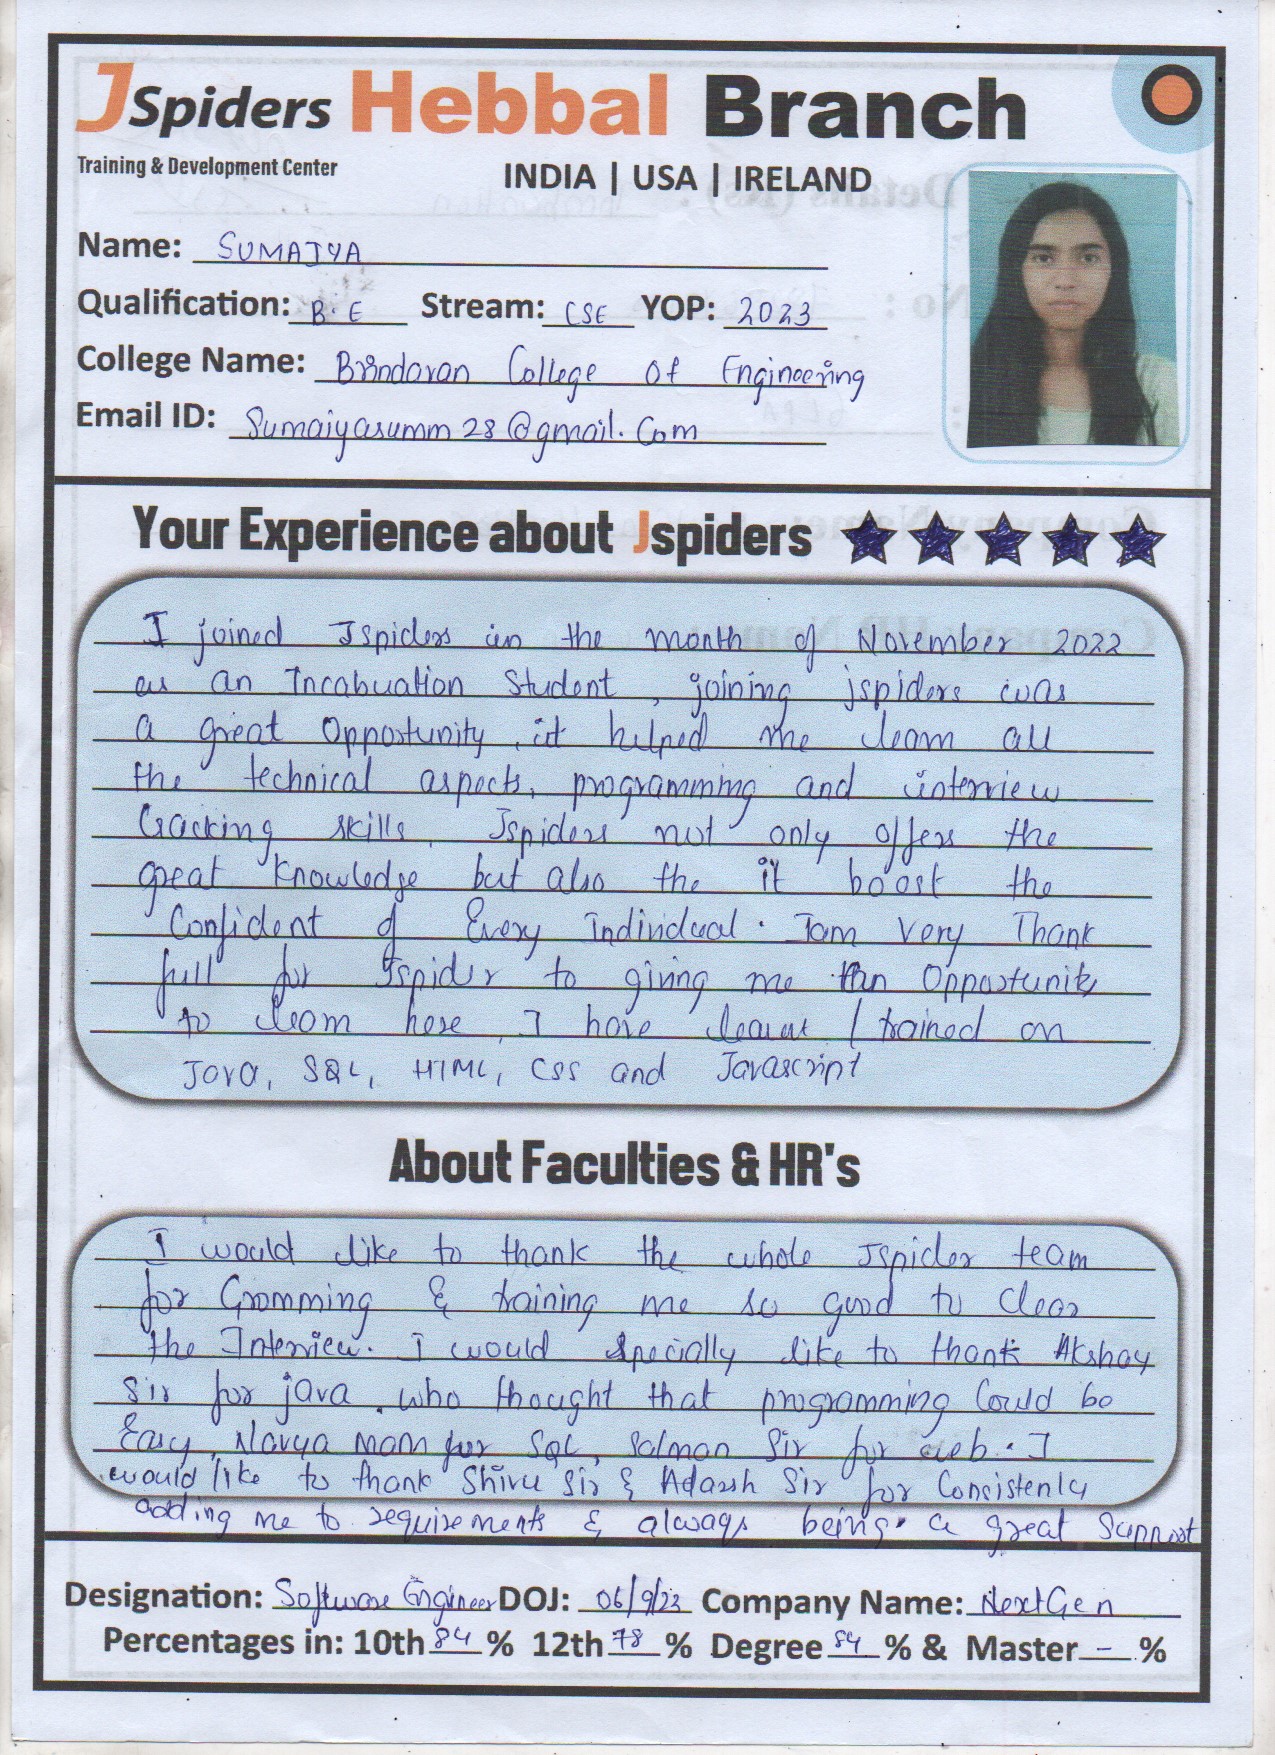 JSpiders Hebbal Branch
Training & Development Center
INDIA | USA | IRELAND
Name: SUMAIYA
Qualification: B.E Stream: CSE YOP: 2023
College Name: Brindavan College Of Engineering
Email ID: Sumaiyasumm28@gmail.Com
Your Experience about Jspiders
I joined Jspiders in the month of November 2022
as an Incabuation Student, joining jspiders was
a great Opportunity, it helped me learn all
the technical aspects, programming and interview
Cracking skills. Jspiders not only offers the
great Knowledge but also the it boost the
Confident of Every Individual. Iam Very Thank
full for Jspider to giving me an Opportunity
to learn here, I have learnt / trained on
Java, SQL, HTML, CSS and Javascript
About Faculties & HR's
I would like to thank the whole Jspider team
for Gromming & training me so good to Clear
the Interview. I would specially like to thank Akshay
Sir for java, who thought that programming Could be
Easy, Navya mam for SQL, Salman Sir for web. I
would like to thank Shivu Sir & Adarsh Sir for Consistenly
adding me to requirements & always being a great Support
Designation: Software Engineer DOJ: 06/9/23 Company Name: NextGen
Percentages in: 10th 84 % 12th 78 % Degree 84 % & Master - %